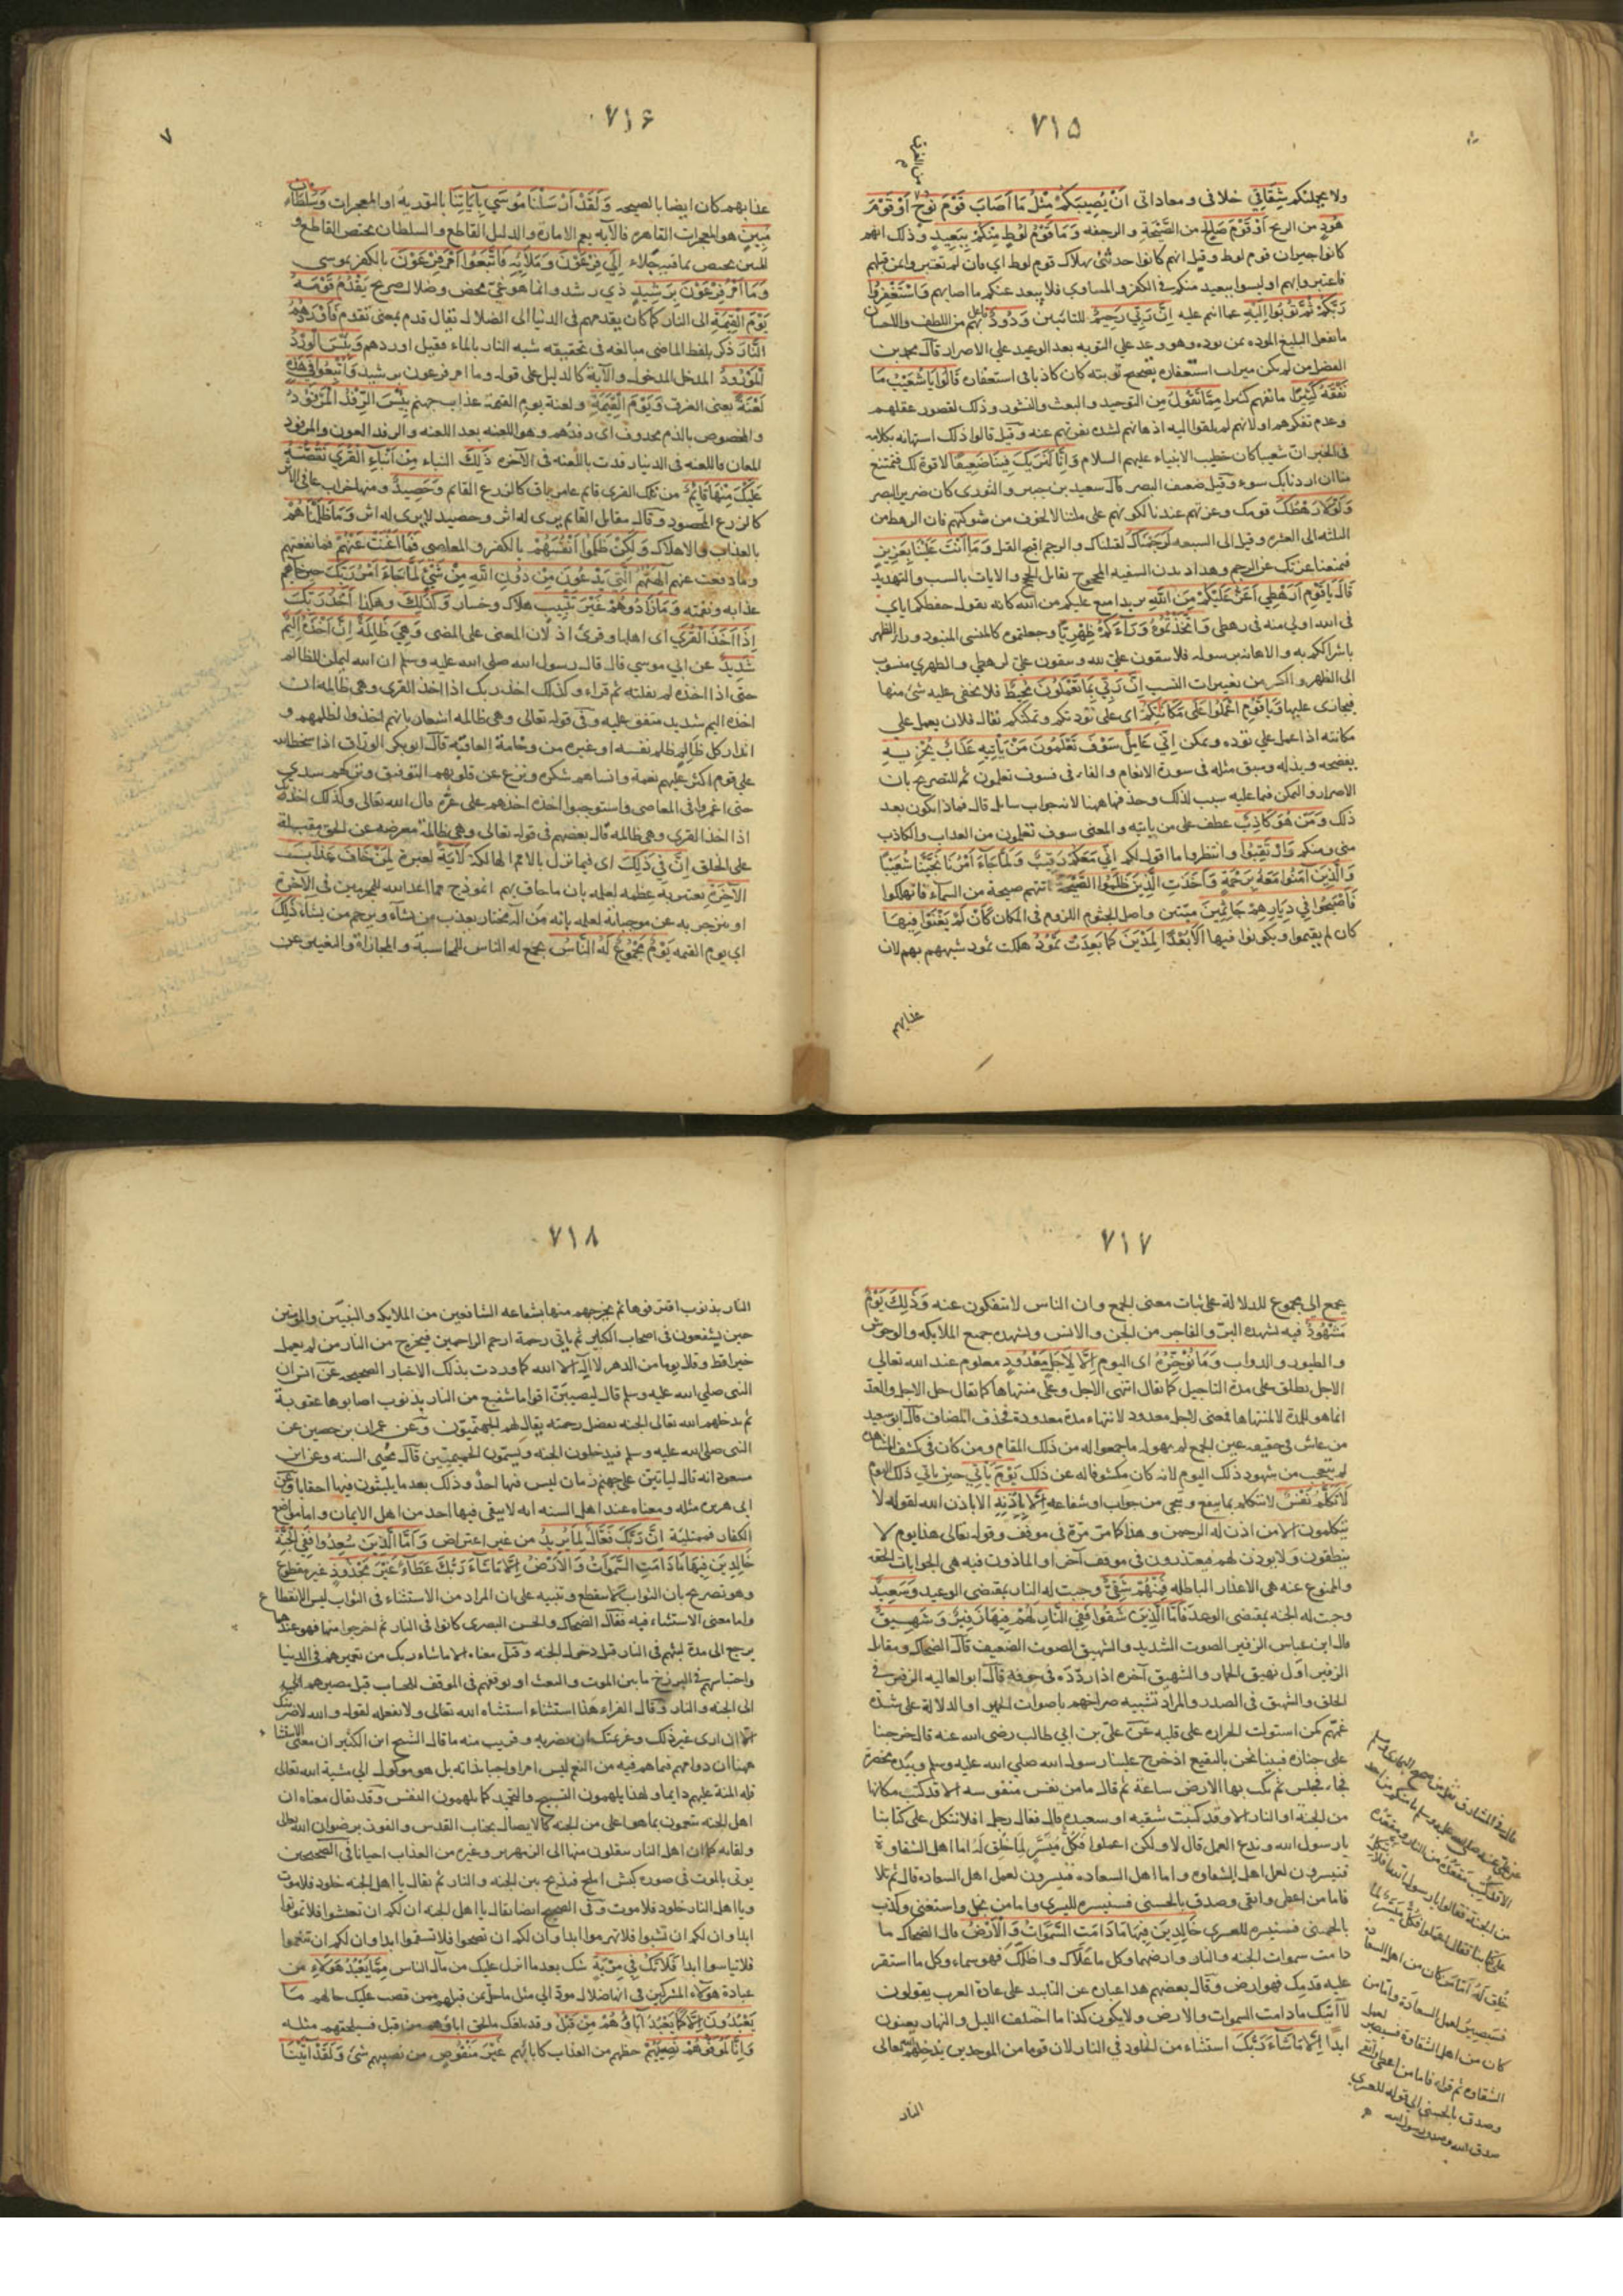 ٧١٥
من الغرق
ولا يجملنكم شِقَاقِي خلافى و معاداتى اَنْ يُصِيبَكُمْ مِثْلُ مَا اَصَابَ قَوْمَ نُوحٍ اَوْ قَوْمَ
هُودٍ من الريح اَوْ قَوْمَ صَالِحٍ من الصَّيْحَةِ و الرجفه وَ مَا قَوْمُ لُوطٍ مِنْكُمْ بِبَعِيدٍ وذلك انهم
كانوا جيران قوم لوط و قيل انهم كانوا حديثى بهلاك قوم لوط اى فان لم تعتبروا بمن قبلهم
فاعتبروا بهم او ليسوا ببعيد منكم فى الكفر و المساوى فلا يبعد عنكم ما اصابهم وَ اسْتَغْفِرُوا
رَبَّكُمْ ثُمَّ تُوبُوا اِلَيْهِ عما انتم عليه اِنَّ رَبِّي رَحِيمٌ للتائبين وَدُودٌ فاعل بهم من اللطف والاحسان
ما يفعل البليغ الموده بمن يوده وهو وعد على التوبه بعد الوعيد على الاصرار قال محمد بن
الفضل من لم يكن ميراث استغفاره تصحيح توبته كان كاذبا فى استغفاره قَالُوا يَا شُعَيْبُ مَا
نَفْقَهُ كَثِيرًا ما نفهم كثيرا مِمَّا تَقُولُ مِن التوحيد و البعث والنشور و ذلك لقصور عقلهم
وعدم تفكرهم او لانهم لم يلقوا اليه اذهانهم لشده نفرتهم عنه وقيل قالوا ذلك استهانه بكلامه
فى الخبر ان شعيبا كان خطيب الانبياء عليهم السلام وَ اِنَّا لَنَرَيكَ فِينَا ضَعِيفًا لا قوة لك فتمتنع
منا ان اردنا بك سوء وقيل ضعيف البصر قال سعيد بن جبير و الثورى كان ضرير البصر
وَ لَوْلَا رَهْطُكَ قومك وعزتهم عندنا لكونهم على ملتنا لا لخوف من شوكتهم فان الرهط من
الثلثه الى العشره وقيل الى السبعه لَرَجَمْنَاكَ لقتلناك و الرجم اقبح القتل وَ مَا اَنْتَ عَلَيْنَا بِعَزِيزٍ
فيمنعنا عزتك عن الرجم وهذا ديدن السفيه المحجوج يقابل الحجج و الايات بالسب والتهديد
قَالَ يَا قَوْمِ اَرَهْطِي اَعَزُّ عَلَيْكُمْ مِنَ اللهِ
فى الله اولى منه فى رهطى وَ اتَّخَذْتُمُوهُ وَرَاءَكُمْ ظِهْرِيًّا وجعلتموه كالمنسى المنبوذ وراء الظهر
باشراككم به و الاهانه برسوله فلا تبقون على لله و تبقون على لرهطى و الظهرى منسوب
الى الظهر و الكسر من تغييرات النسب اِنَّ رَبِّي بِمَا تَعْمَلُونَ مُحِيطٌ فلا يخفى عليه شئ منها
فيجازى عليها وَ يَا قَوْمِ اعْمَلُوا عَلَى مَكَانَتِكُمْ اى على تؤدتكم و تمكنكم يقال فلان يعمل على
مكانته اذا عمل على تؤده و تمكن اِنِّي عَامِلٌ سَوْفَ تَعْلَمُونَ مَنْ يَأْتِيهِ عَذَابٌ يُخْزِيهِ
يفضحه و يذله وسبق مثله فى سورة الانعام و الفاء فى فسوف تعلمون ثم للتصريح بان
الاصرار و التمكن فيما عليه سبب لذلك وحذفها ههنا لانه جواب سائل قال فماذا يكون بعد
ذلك وَ مَنْ هُوَ كَاذِبٌ عطف على من ياتيه و المعنى سوف تعلمون من العذاب والكاذب
منى ومنكم وَ ارْتَقِبُوا وانتظروا ما اقول لكم اِنِّي مَعَكُمْ رَقِيبٌ وَ لَمَّا جَاءَ اَمْرُنَا نَجَّيْنَا شُعَيْبًا
وَ الَّذِينَ اٰمَنُوا مَعَهُ بِرَحْمَةٍ وَ اَخَذَتِ الَّذِينَ ظَلَمُوا الصَّيْحَةُ اتتهم صيحة من السماء فاهلكوا
فَاَصْبَحُوا فِي دِيَارِهِمْ جَاثِمِينَ ميتين و اصل الجثوم اللزوم فى المكان كَأَنْ لَمْ يَغْنَوْا فِيهَا
كان لم يقيموا ويكونوا فيها اَلَا بُعْدًا لِمَدْيَنَ كَمَا بَعِدَتْ ثَمُودُ هلكت ثمود شبههم بهم لان
عذابهم
٧١٦
٧
عذابهم كان ايضا بالصيحه وَ لَقَدْ اَرْسَلْنَا مُوسَي بِاٰيَاتِنَا بالتوريه او المعجزات وَسُلْطَانٍ
مُبِينٍ هو المعجزات القاهره فالآيه يعم الاماره والدليل القاطع و السلطان يختص القاطع و
المبين يختص بما فيه جلاء اِلَي فِرْعَوْنَ وَمَلَائِهِ فَاتَّبَعُوا اَمْرَ فِرْعَوْنَ بالكفر بموسى
وَ مَا اَمْرُ فِرْعَوْنَ بِرَشِيدٍ ذي رشد وانما هو غيّ محض و ضلال صريح يَقْدُمُ قَوْمَهُ
يَوْمَ الْقِيٰمَةِ الى النار كما كان يقدمهم فى الدنيا الى الضلال يقال قدم بمعنى تقدم فَاَوْرَدَهُمُ
النَّارَ ذكره بلفظ الماضى مبالغه فى تحقيقه شبه النار بالماء فقيل اوردهم وَ بِئْسَ الْوِرْدُ
الْمَوْرُودُ المدخل المدخول و الآية كالدليل على قوله وما امر فرعون برشيد وَ اُتْبِعُوا فِي هٰذِهِ
لَعْنَةً يعنى الغرق وَ يَوْمَ الْقِيٰمَةِ و لعنة يوم القيمة عذاب جهنم بِئْسَ الرِّفْدُ الْمَرْفُودُ
و المخصوص بالذم محذوف اى رفدهم وهو اللعنه بعد اللعنه و الرفد العون والمرفود
المعان فاللعنه فى الدنيا رفدت باللعنه فى الآخره ذٰلِكَ النباء مِنْ اَنْبَاءِ الْقُرَي نَقُصُّهُ
عَلَيْكَ مِنْهَا قَائِمٌ من تلك القرى قائم عامر باق كالزرع القائم وَ حَصِيدٌ و منها خراب عافى الاثر
كالزرع المحصود و قال مقاتل القائم يرى له اثر و حصيد لا يرى له اثر وَ مَا ظَلَمْنَاهُمْ
بالعذاب و الاهلاك وَ لٰكِنْ ظَلَمُوا اَنْفُسَهُمْ بالكفر و المعاصى فَمَا اَغْنَتْ عَنْهُمْ فما نفعتهم
وما دفعت عنهم اٰلِهَتُهُمُ الَّتِي يَدْعُونَ مِنْ دُونِ اللهِ مِنْ شَيْءٍ لَمَّا جَاءَ اَمْرُ رَبِّكَ حين جاءهم
عذابه ونقمته وَ مَا زَادُوهُمْ غَيْرَ تَتْبِيبٍ هلاك وخسار وَ كَذٰلِكَ وهكذا اَخْذُ رَبِّكَ
اِذَا اَخَذَ الْقُرَي اى اهلها وقرئ اذ لان المعنى على المضى وَ هِيَ ظَالِمَةٌ اِنَّ اَخْذَهُ اَلِيمٌ
شَدِيدٌ عن ابي موسى قال قال رسول الله صلى الله عليه وسلم ان الله ليملى للظالم
حتى اذا اخذه لم يفلته ثم قراء وكذلك اخذ ربك اذا اخذ القرى وهى ظالمه ان
اخذه اليم شديد متفق عليه و فى قوله تعالى وهى ظالمه اشعار بانهم اخذوا لظلمهم و
انذار كل ظالم ظلم نفسه او غيره من وخامة العاقبة قال ابو بكر الوراق اذا سخط الله
على قوم اكثر عليهم نعمة وانساهم شكره ونزع عن قلوبهم التوفيق وتركهم سدى
حتى اغمروا فى المعاصى واستوجبوا اخذه اخذهم على غره قال الله تعالى وكذلك اخذ ربك
اذا اخذ القرى وهى ظالمه قال بعضهم فى قوله تعالى وهى ظالمة معرضه عن الحق مقبلة
على الخلق اِنَّ فِي ذٰلِكَ اى فيما نزل بالامم الهالكة لَاٰيَةً لعبرة لِمَنْ خَافَ عَذَابَ
الْاٰخِرَةِ يعتبر به عظمه لعلمه بان ما حاق بهم انموذج مما اعد الله للمجرمين فى الآخرة
او ينزجر به عن موجباته لعلمه بانه من اله مختار يعذب من يشاء ويرحم من يشاء ذٰلِكَ
اي يوم القيمه يَوْمٌ مَجْمُوعٌ لَهُ النَّاسُ يجمع له الناس للمحاسبة و المجازاة والتغيير عن
٧١٧
يجمع الى مجموع للدلالة على ثبات معنى الجمع وان الناس لا ينفكون عنه وَ ذٰلِكَ يَوْمٌ
مَشْهُودٌ فيه يشهده البرّ و الفاجر من الجن و الانس ويشهده جميع الملايكه والوحوش
و الطيور و الدواب وَ مَا نُؤَخِّرُهُ اى اليوم اِلَّا لِاَجَلٍ مَعْدُودٍ معلوم عند الله تعالي
الاجل يطلق على مدة التاجيل كما يقال انتهى الاجل وعلى منتهاها كما يقال حل الاجل والعدّ
انما هو للمدة لا لمنتهاها فمعنى لاجل معدود لانتهاء مدة معدودة فحذف المضاف قال ابو سعيد
من عاش فى حقيقه عين الجمع لم يهوله ما جمعوا له من ذلك المقام ومن كان فى كشف المشاهده
لم يتعجب من شهود ذلك اليوم لانه كان مكشوفا له عن ذلك يَوْمَ يَاْتِي حين ياتي ذلك اليوم
لَا تَكَلَّمُ نَفْسٌ لا تتكلم بما ينفع و ينجى من جواب او شفاعه اِلَّا بِاِذْنِهِ الا باذن الله لقوله لا
يتكلمون الا من اذن له الرحمن وهذا كما مر مرّة فى موقف وقوله تعالى هذا يوم لا
ينطقون ولا يوذن لهم فيعتذرون فى موقف آخر او الماذون فيه هى الجوابات الحقه
والممنوع عنه هى الاعذار الباطله فَمِنْهُمْ شَقِيٌّ وجبت له النار بمقتضى الوعيد وَ سَعِيدٌ
وجبت له الجنه بمقتضى الوعد فَاَمَّا الَّذِينَ شَقُوا فَفِي النَّارِ لَهُمْ فِيهَا زَفِيرٌ وَ شَهِيقٌ
قال ابن عباس الزفير الصوت الشديد و الشهيق الصوت الضعيف قال الضحاك و مقاتل
الزفير اوّل نهيق الحمار و الشهيق آخره اذا ردّده فى جوفه قال ابو العاليه الزفير فى
الحلق و الشهيق فى الصدر و المراد تشبيه صراخهم باصوات الحمير او الدلالة على شدّة
غمّهم كمن استولت الحراره على قلبه عن علىّ بن ابي طالب رضى الله عنه قال خرجنا
على جنازه فبينا نحن بالبقيع اذ خرج علينا رسول الله صلى الله عليه وسلم وبيده مخصرة
فجاء فجلس ثم نكت بها الارض ساعة ثم قال ما من نفس منفوسه الا قد كتب مكانها
من الجنة او النار الا وقد كتبت شقيه او سعيده قال فقال رجل افلا نتكل على كتابنا
يا رسول الله وندع العمل قال لا ولكن اعملوا فكلٌّ مُيَسَّرٍ لما خُلِقَ لَهُ اما اهل الشقاوة
فييسرون لعمل اهل الشقاوه و اما اهل السعاده فييسرون لعمل اهل السعاده قال ثم تلا
فاما من اعطى واتقى وصدق بالحسنى فسنيسره لليسرى واما من بخل واستغنى وكذب
بالحسنى فسنيسره للعسرى خَالِدِينَ فِيهَا مَا دَامَتِ السَّمٰوَاتُ وَ الْاَرْضُ قال الضحاك ما
دامت سموات الجنه و النار و ارضهما و كل ما علاك و اظلك فهو سماء و كل ما استقر
عليه قدمك فهو ارض وقال بعضهم هذا عباره عن التابيد على عادة العرب يقولون
لا آتيك ما دامت السموات والارض ولا يكون كذا ما اختلف الليل و النهار يعنون
ابدا اِلَّا مَا شَاءَ رَبُّكَ استثناء من الخلود فى النار لان قوما من الموحدين يدخلهم الله تعالى
النار
من الجنة فقالوا يا رسول الله افلا نتكل
على كتابنا فقال اعملوا فكل ميسر لما
خُلِقَ لَهُ اَمَّا مَن كان من اهل السعادة
فسيصير لعمل السعادة واما من
كان من اهل الشقاوة فسيصير لعمل
الشقاوه ثم قرا فاما من اعطى واتقى
وصدق بالحسنى الى قوله للعسرى
صدق الله وصدق رسول الله
٧١٨
النار بذنوب اقترفوها ثم يخرجهم منها بشفاعه الشافعين من الملايكه و النبيين والمومنين
حين يشفعون فى اصحاب الكباير ثم ياتى رحمة ارحم الراحمين فيخرج من النار من لم يعمل
خيرا قط وقال يوما من الدهر لا اله الا الله كما وردت بذلك الاخبار الصحيحه عن انس ان
النبى صلى الله عليه وسلم قال ليصيبن اقواما سفع من النار بذنوب اصابوها عقوبة
ثم يدخلهم الله تعالى الجنه بفضل رحمته يقال لهم الجهنّميّون وعن عمران بن حصين عن
النبى صلى الله عليه وسلم فيدخلون الجنه ويسمّون الجهنميين قال محيى السنه وعن ابن
مسعود انه قال لياتين على جهنم زمان ليس فيها احد وذلك بعد ما يلبثون فيها احقابا وعن
ابى هريره مثله و معناه عند اهل السنه انه لا يبقى فيها احد من اهل الايمان و اما مواضع
الكفار فممتلئة اِنَّ رَبَّكَ فَعَّالٌ لِمَا يُرِيدُ من غير اعتراض وَ اَمَّا الَّذِينَ سُعِدُوا فَفِي الْجَنَّةِ
خَالِدِينَ فِيهَا مَا دَامَتِ السَّمٰوَاتُ وَ الْاَرْضُ اِلَّا مَا شَاءَ رَبُّكَ عَطَاءً غَيْرَ مَجْذُوذٍ غير مقطوع
وهو تصريح بان الثواب لا ينقطع و تنبيه على ان المراد من الاستثناء فى الثواب ليس الانقطاع
واما معنى الاستثناء فيه فقال الضحاك و الحسن البصرى كانوا فى النار ثم اخرجوا منها فهو عندهما
يرجع الى مدة لبثهم فى النار قبل دخول الجنه وقيل معناه الا ما شاء ربك من تعميرهم فى الدنيا
و احتباسهم فى البرزخ ما بين الموت و البعث او توقفهم فى الموقف للحساب قبل مصيرهم
الى الجنه والنار وقال الفراء هذا استثناء استثناه الله تعالى ولا يفعله لقوله والله لاضربنك
الا ان ارى غير ذلك وعزيمتك ان تضربه وقريب منه ما قاله الشيخ ابن الكثير ان معنى الاستثناء
ههنا ان دوامهم فيما هم فيه من النعيم ليس امرا واجبا بذاته بل هو موكول الى مشية الله تعالى
فله المنة عليهم دايما و لهذا يلهمون التسبيح والتحميد كما يلهمون النفس وقد يقال معناه ان
اهل الجنه ينعمون بما هو اعلى من الجنه كالاتصال بجناب القدس و الفوز برضوان الله تعالى
و لقائه كما ان اهل النار ينقلون منها الى الزمهرير وغيره من العذاب احيانا فى الصحيحين
يوتى بالموت فى صورة كبش املح فيذبح بين الجنه و النار ثم يقال يا اهل الجنه خلود فلا موت
ويا اهل النار خلود فلا موت وفى الصحيح ايضا يقال يا اهل الجنه ان لكم ان تعيشوا فلا تموتوا
ابدا وان لكم ان تشبوا فلا تهرموا ابدا وان لكم ان تصحوا فلا تسقموا ابدا وان لكم ان تنعموا
فلا تباسوا ابدا فَلَا تَكُ فِي مِرْيَةٍ شك بعد ما انزل عليك من مآل الناس مِمَّا يَعْبُدُ هٰؤُلَاءِ من
عبادة هولاء المشركين فى انها ضلال مودّ الى مثل ما حل بمن قبلهم ممن قصصت عليك حالهم مَا
يَعْبُدُونَ اِلَّا كَمَا يَعْبُدُ اٰبَاؤُهُمْ مِنْ قَبْلُ وقد بلغك ما لحق اباؤهم من قبل فسيلحقهم مثله
وَ اِنَّا لَمُوَفُّوهُمْ نَصِيبَهُمْ حظهم من العذاب كآبائهم غَيْرَ مَنْقُوصٍ من نصيبهم شئ وَ لَقَدْ اٰتَيْنَا